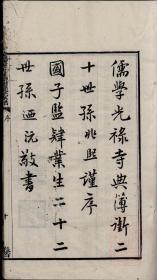 儒學光祿寺典簿銜二
十世孫兆熙謹序
國子監肄業生二十二
世孫迺沅敬書
序